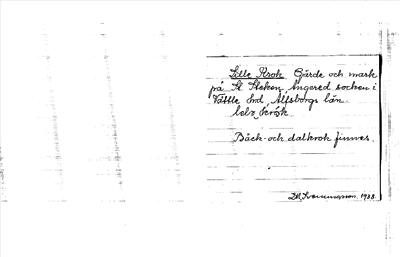 Lille Krok Gärde och mark
på St Steken Angered socken i
Vättle hrd, Älfsborgs län
Bäck- och dalkrok finnes.
1938.